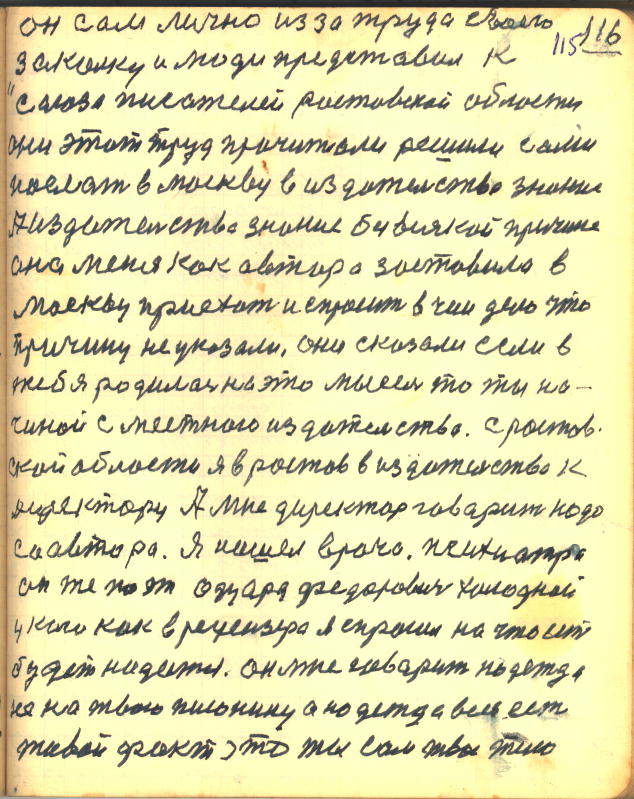 он сам лично из за труда своего
115 116
заколку и люди представил к
"саюза писателей ростовской области
они этот труд прочитали решили сами
послат в москву в издателство знание
А издателства знание безвсякой причине
она меня как автора заставила в
москву приехат и спросит в чем дело что
причину не указали, они сказали если в
тебя родилася на это мысел то ты на-
чиной с местного издателства. с ростов.
ской области я в ростов в издателства к
директору А мне директор говарит надо
саавтора. Я нашел врача. психиатра
он же поэт Эдуард федорович холодной
у кого как в рецензера я спросил на что
будет надежда. он мне говарит надежда
не на твою писанину а надежда вся ест
живой факт это ты сам твое тело